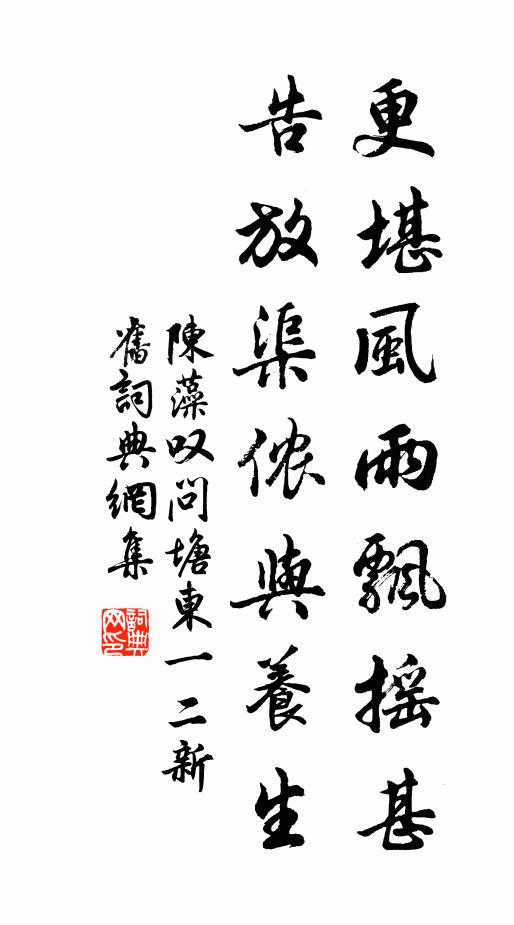 更堪風雨飄摇甚
告放渠侬與養生
陳藻叹問塘東一二新
舊詞典網集
詞典
网印